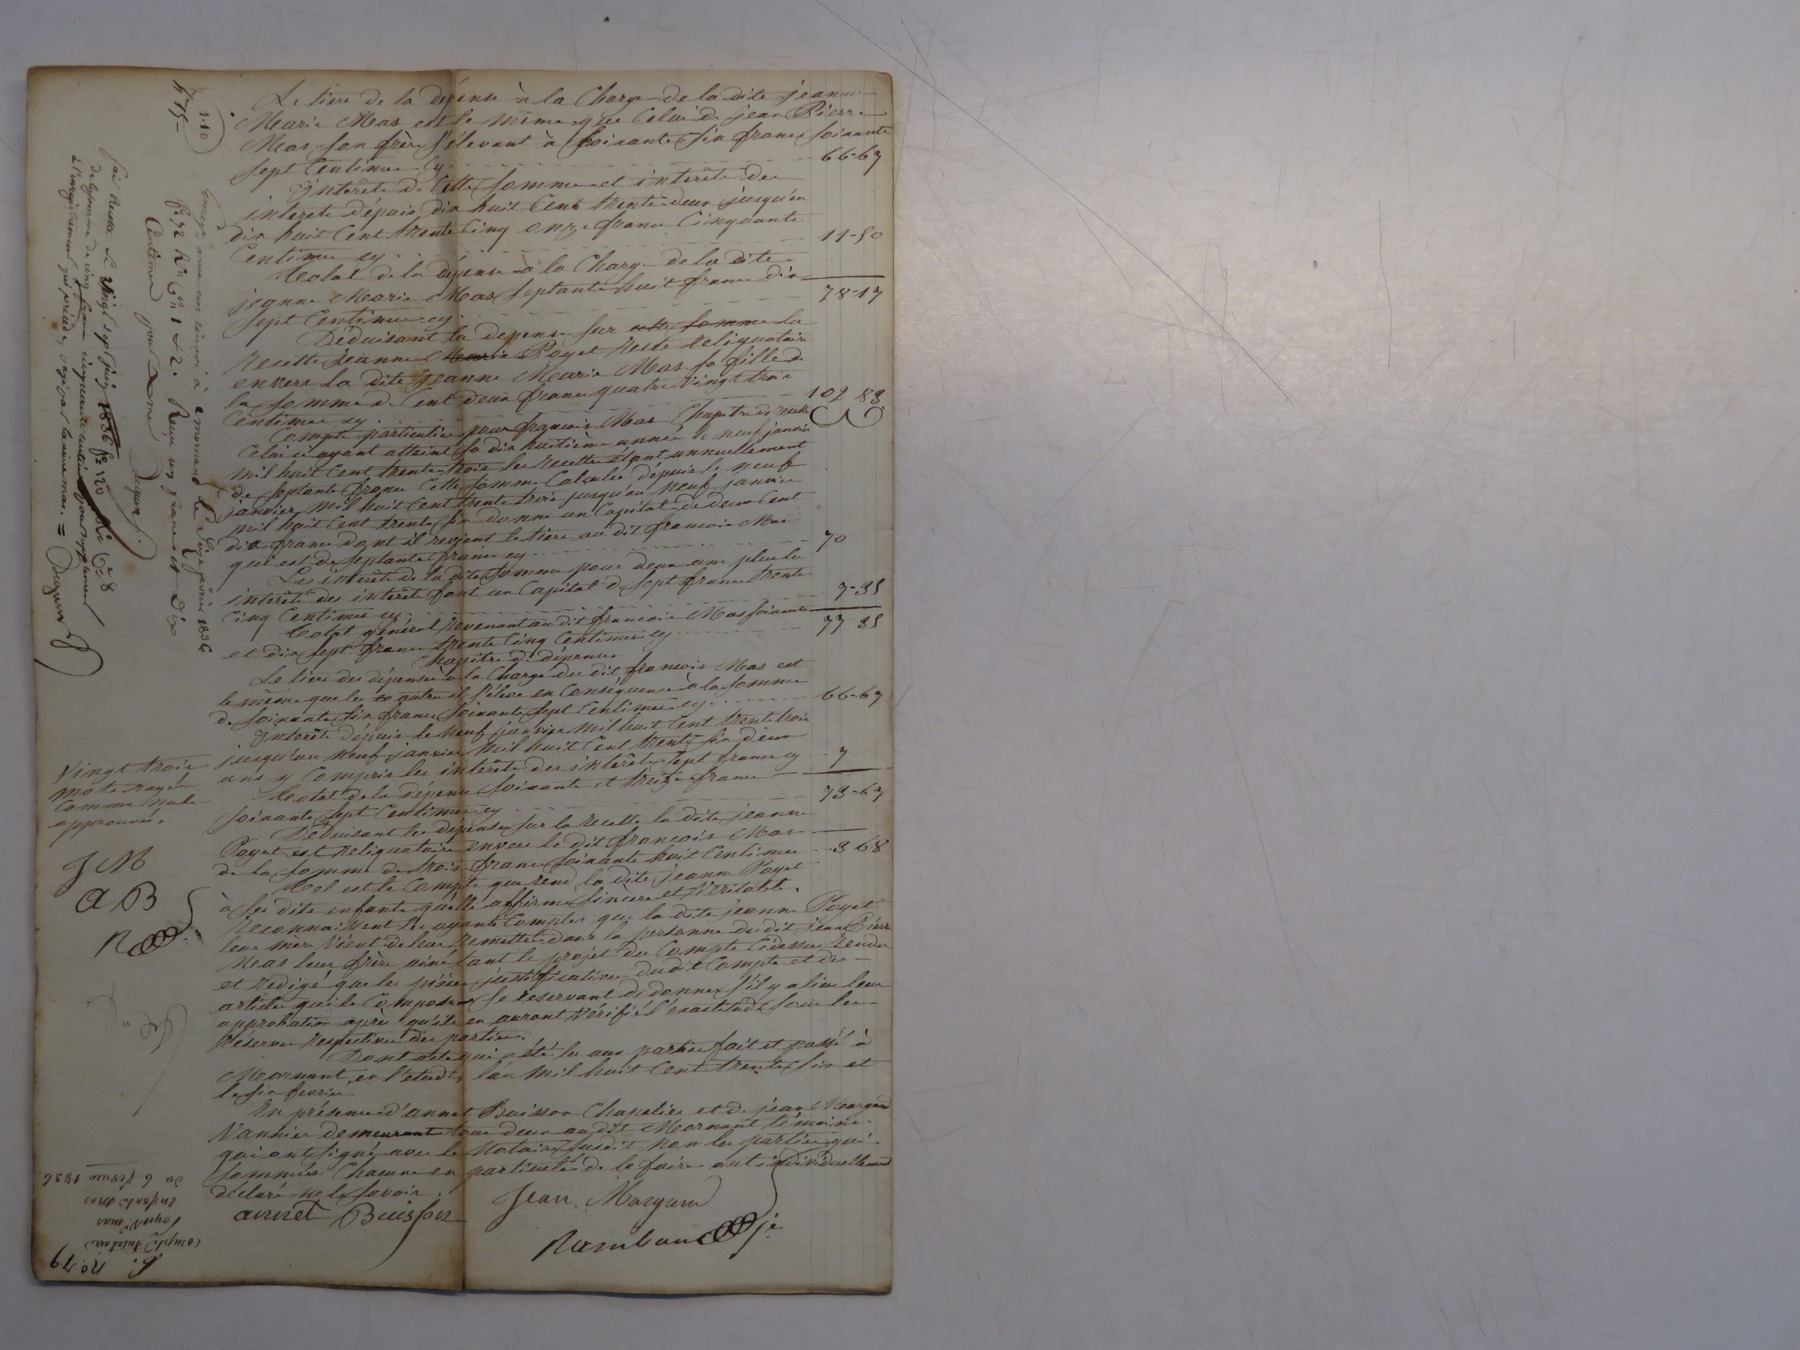 Le tiers de la dépense à la Charge de la dite jeanne
Marie Mas est le même que Celui de jean Pierre
Mas son frère s'élevant à soixante six francs soixante
sept Centimes Cy 66-67
Interêts de Cette somme et interêts des
interets dépuis dix huit Cent trente deux jusqu'en
dix huit Cent trente Cinq onze francs Cinquante
Centimes cy 11-50
total de la dépense à la Charge de la dite
jeanne Marie Mas septante huit francs dix 78-17
sept Centimes cy
Déduisant la depense sur cette somme la
Recette jeanne Marie Poyet Reste Reliquataire
envers la dite jeanne Marie Mas sa fille de
la somme de Cent deux francs quatre Vingt trois
Centimes cy 102 83
Compte particulier pour françois Mas Chapitre de recette
Celui ci ayant atteint sa dix huitième année le neuf janvier
mil huit Cent trente trois les Recettes étant annuellement
de septante francs Cette somme Calculée dépuis le neuf
janvier mil huit Cent trente trois jusqu'au neuf janvier
mil huit Cent trente six donne un Capital de deux Cent
dix francs dont il revient le tiers au dit francois Mas
qui est de septante francs cy 70
Les interêts de la dite somme pour deux ans plus les
interêts des interêts font un Capital de sept francs trente
Cinq Centimes cy 7-35
total général Revenant au dit francois Mas soixante
et dix sept francs trente Cinq Centimes cy 77 35
Chapitre de dépenses
Le tiers des dépenses à la Charge du dit francois Mas est
le même que les autres il s'élève en Conséquence à la somme
de soixante six francs soixante sept Centimes cy 66-67
Interêts dépuis le neuf janvier mil huit Cent trente trois
jusqu'au neuf janvier mil huit Cent trente six deux
ans y Compris les intérêts des intérêts sept francs cy 7
total de la dépense soixante et treize francs
soixante sept Centimes cy 73-67
Déduisant les dépenses sur la Recette la dite jeanne
Poyet est Reliquataire envers le dit françois Mas
de la somme de trois francs soixante huit Centimes 3 68
tel est le Compte que Rend la dite jeanne Poyet
à ses dits enfants qu'elle affirme sincere et Véritable.
Reconnaissent les ayants Comptes que la dite jeanne Poyet
leur mère Vient de leur Remettre dans la personne du dit jean Pierre
Mas leur frère ainé tant le projet du Compte Cidessus Rendu
et Rédigé que les pièces justificatives dudit Compte et des
articles qui le Composent se reservant de donner s'il y a lieu leur
approbation après qu'ils en auront Vérifié l'exactitude sous les
Réserves Respectives des parties.
Dont acte qui a été lu aux parties fait et passé à
Mornant, en l'etude, l'an mil huit Cent trente six et
le six fevrier
En présence d'annet Buisson Chapelier et de jean Margand
Vannier demeurant tous deux au dit Mornant témoins
qui ont signé avec le Notaire susdit non les parties qui
sommées Chacune en particulier de le faire ont individuellement
déclaré ne le savoir.
annet Buisson Jean Margand
Rambau
Vingt trois
mots rayés
comme nuls
approuvés.
JM
AB
R
1.10
Enregistré à mornant le seize fevrier 1836
fo 92 Ro Cen 1 et 2. Reçu un franc et dix
Centimes pour Dixme
J'ai Recette le Vingt sept juin 1836 fo 120 Ro Co 8
la somme de cinq francs cinquante centimes pour supplement
à l'enregistrement qui précède,
no. 79
Compte tutelaire
Poyet Ve mas
enfants mas
du 6 fevrier 1836